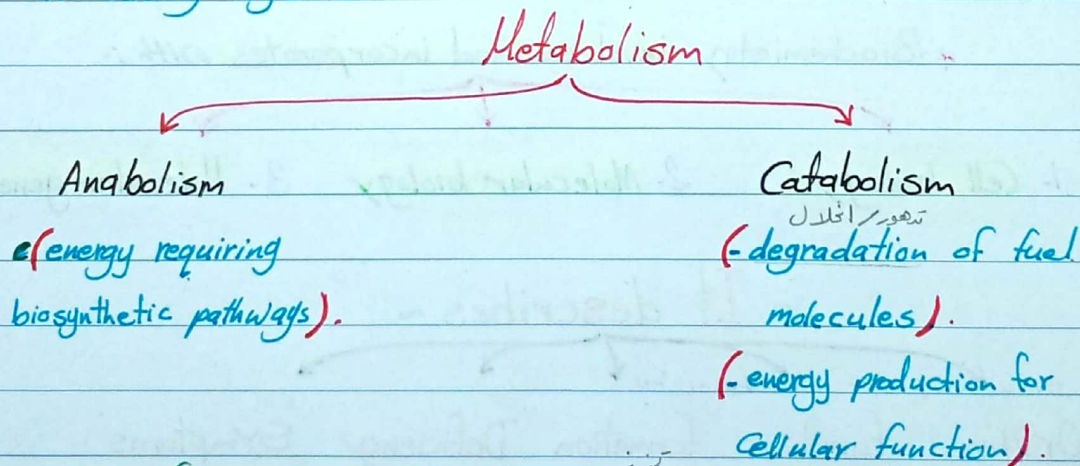 Metabolism
Anabolism
(energy requiring
biosynthetic pathways).
Catabolism
تدهور/انحلال
(- degradation of fuel
molecules).
(- energy production for
Cellular function).